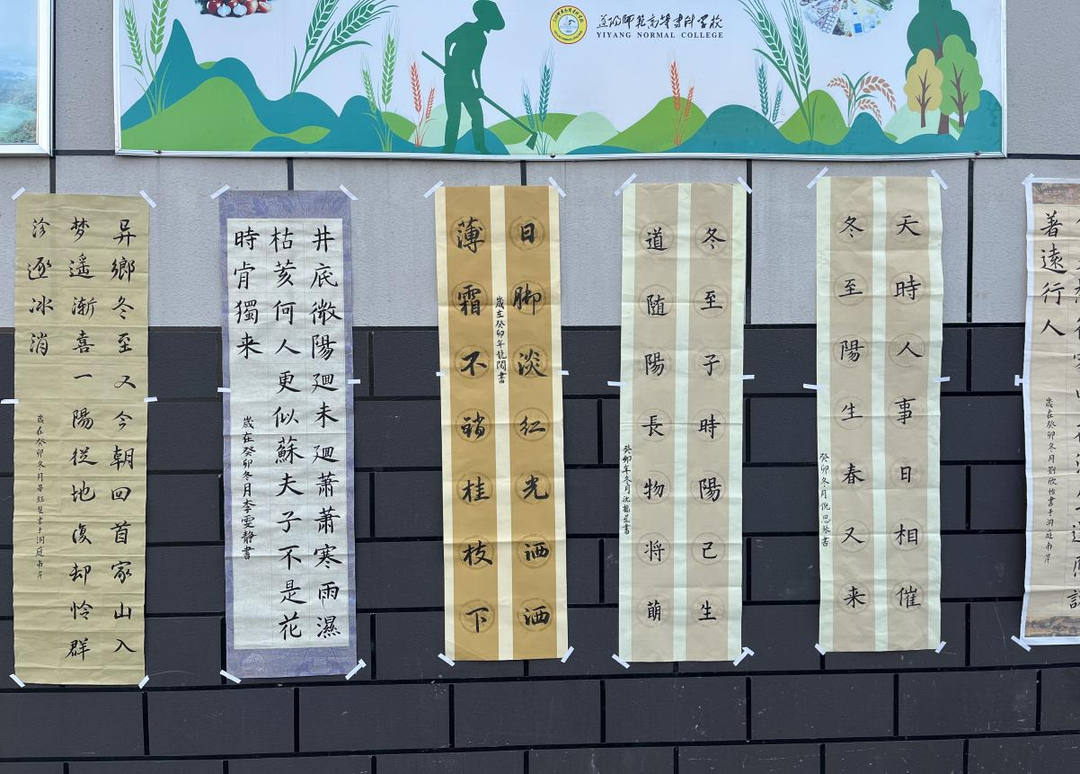 益阳师范高等专科学校
YIYANG NORMAL COLLEGE
异鄉冬至又今朝回首家山入
梦遥渐喜一陽從地復却怜群
沴逐冰消
歲在癸卯冬月書于洞庭南岸
井底微陽廻未廻蕭蕭寒雨濕
枯荄何人更似蘇夫子不是花
時肯獨来
歲在癸卯冬月李雯静書
日脚淡红光洒洒
薄霜不销桂枝下
歲在癸卯年書
冬至子時陽已生
道随陽長物将萌
癸卯年冬月沈書
天時人事日相催
冬至陽生春又来
癸卯冬月倪思琴書
著遠行人
歲在癸卯冬月劉欣怡書于洞庭南岸